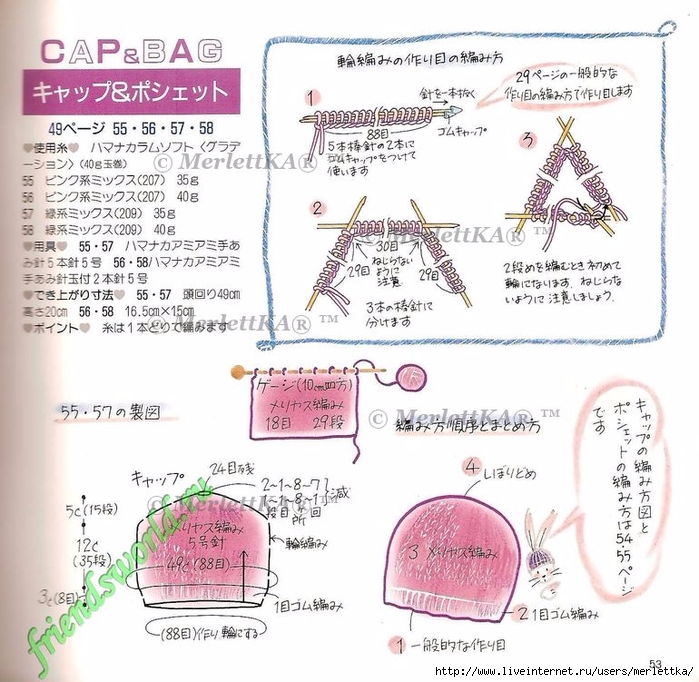 CAP&BAG
キャップ&ポシェット
49ページ 55・56・57・58
♥使用糸♥ ハマナカラムソフト〈グラデ
ーション〉(40g玉巻)
55 ピンク系ミックス(207) 35g
56 ピンク系ミックス(207) 40g
57 緑系ミックス(209) 35g
58 緑系ミックス(209) 40g
♥用具♥ 55・57 ハマナカアミアミ手あ
み針5本針5号 56・58ハマナカアミアミ
手あみ針玉付2本針5号
♥でき上がり寸法♥ 55・57 頭回り49cm
高さ20cm 56・58 16.5cm×15cm
♥ポイント♥ 糸は1本どりで編みます
© MerlettKA® ™
© MerlettKA® ™
輪編みの作り目の編み方
1
針を一本抜く
88目
ゴムキャップ
5本棒針の2本に
ゴムキャップをつけて
使います
29ページの一般的な
作り目の編み方で作り目します
2
30目
ねじらない
ように
注意
29目
29目
3本の棒針に
分けます
© MerlettKA® ™
3
2段めを編むとき初めて
輪になります。ねじらな
いように注意しましょう。
ゲージ(10cm四方)
メリヤス編み
18目 29段
© MerlettKA® ™
55・57の製図
キャップ
24目残
2~1~8~7
~8~1
減
段目回
所
メリヤス編み
5号針
輪編み
49c(88目)
5c(15段)
12c
(35段)
3c(8目)
1目ゴム編み
(88目)作り輪にする
© MerlettKA® ™
編み方順序とまとめ方
4
しぼりどめ
3 メリヤス編み
2 1目ゴム編み
1 一般的な作り目
キャップの編み方図と
ポシェットの編み方は54
55ページ
です
friendsworld.ru
53
http://www.liveinternet.ru/users/merlettka/